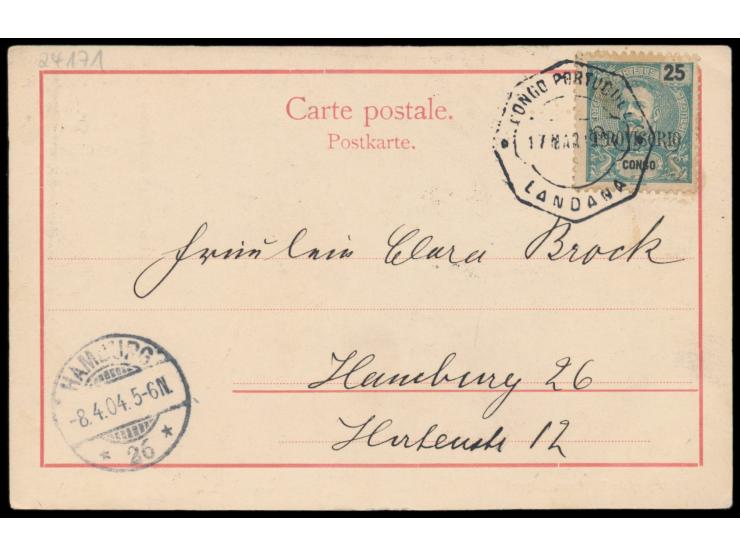 24171
Carte postale.
Postkarte.
25
PROVISORIO
CONGO
CONGO PORTUGUEZ
17 MAR
LANDANA
Fräulein Clara Brock
Hamburg 26
HAMBURG
-8.4.04.5-6N.
* 26 *
12